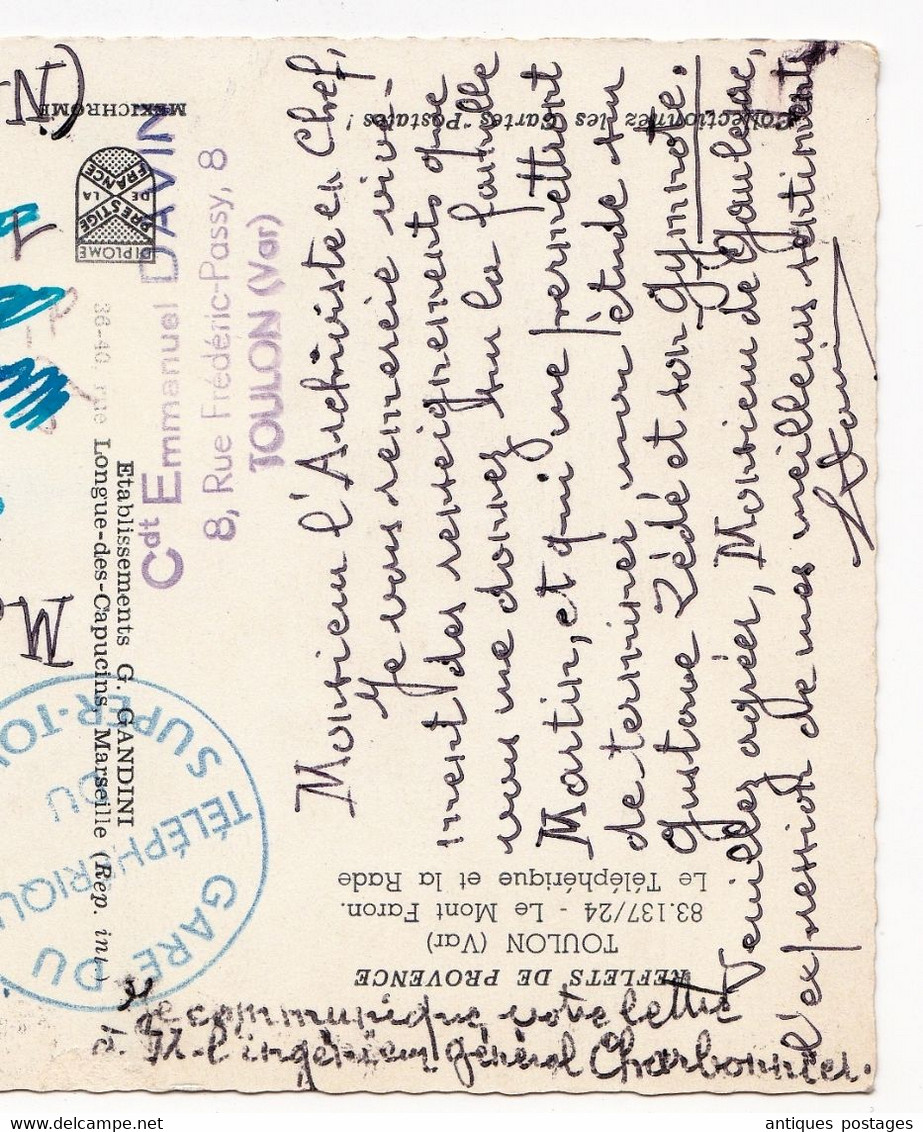 Monsieur l'Archiviste en Chef,
Je vous remercie vive-
ment des renseignements que
vous me donnez sur la famille
Martin, et qui me permettront
de terminer mon étude sur
Gustave Zédé et son Gymnote.
Veuillez agréer, Monsieur de Gaulejac,
l'expression de mes meilleurs sentiments
Davin
Je communique votre lettre
à M. l'ingénieur général Charbonnier.
Cpt Emmanuel DAVIN
8, Rue Frédéric-Passy, 8
TOULON (Var)
REFLETS DE PROVENCE
TOULON (Var)
83.137/24 - Le Mont Faron.
Le Téléphérique et la Rade
Collectionnez les Cartes Postales !
MEXICHROME
DIPLOME
PRESTIGE
DE LA
FRANCE
Etablissements G. GANDINI
36-40, rue Longue-des-Capucins, Marseille (Rep. int)
GARE DU
TÉLÉPHÉRIQUE
DU
SUPER-TO
M
(N
antiques postages